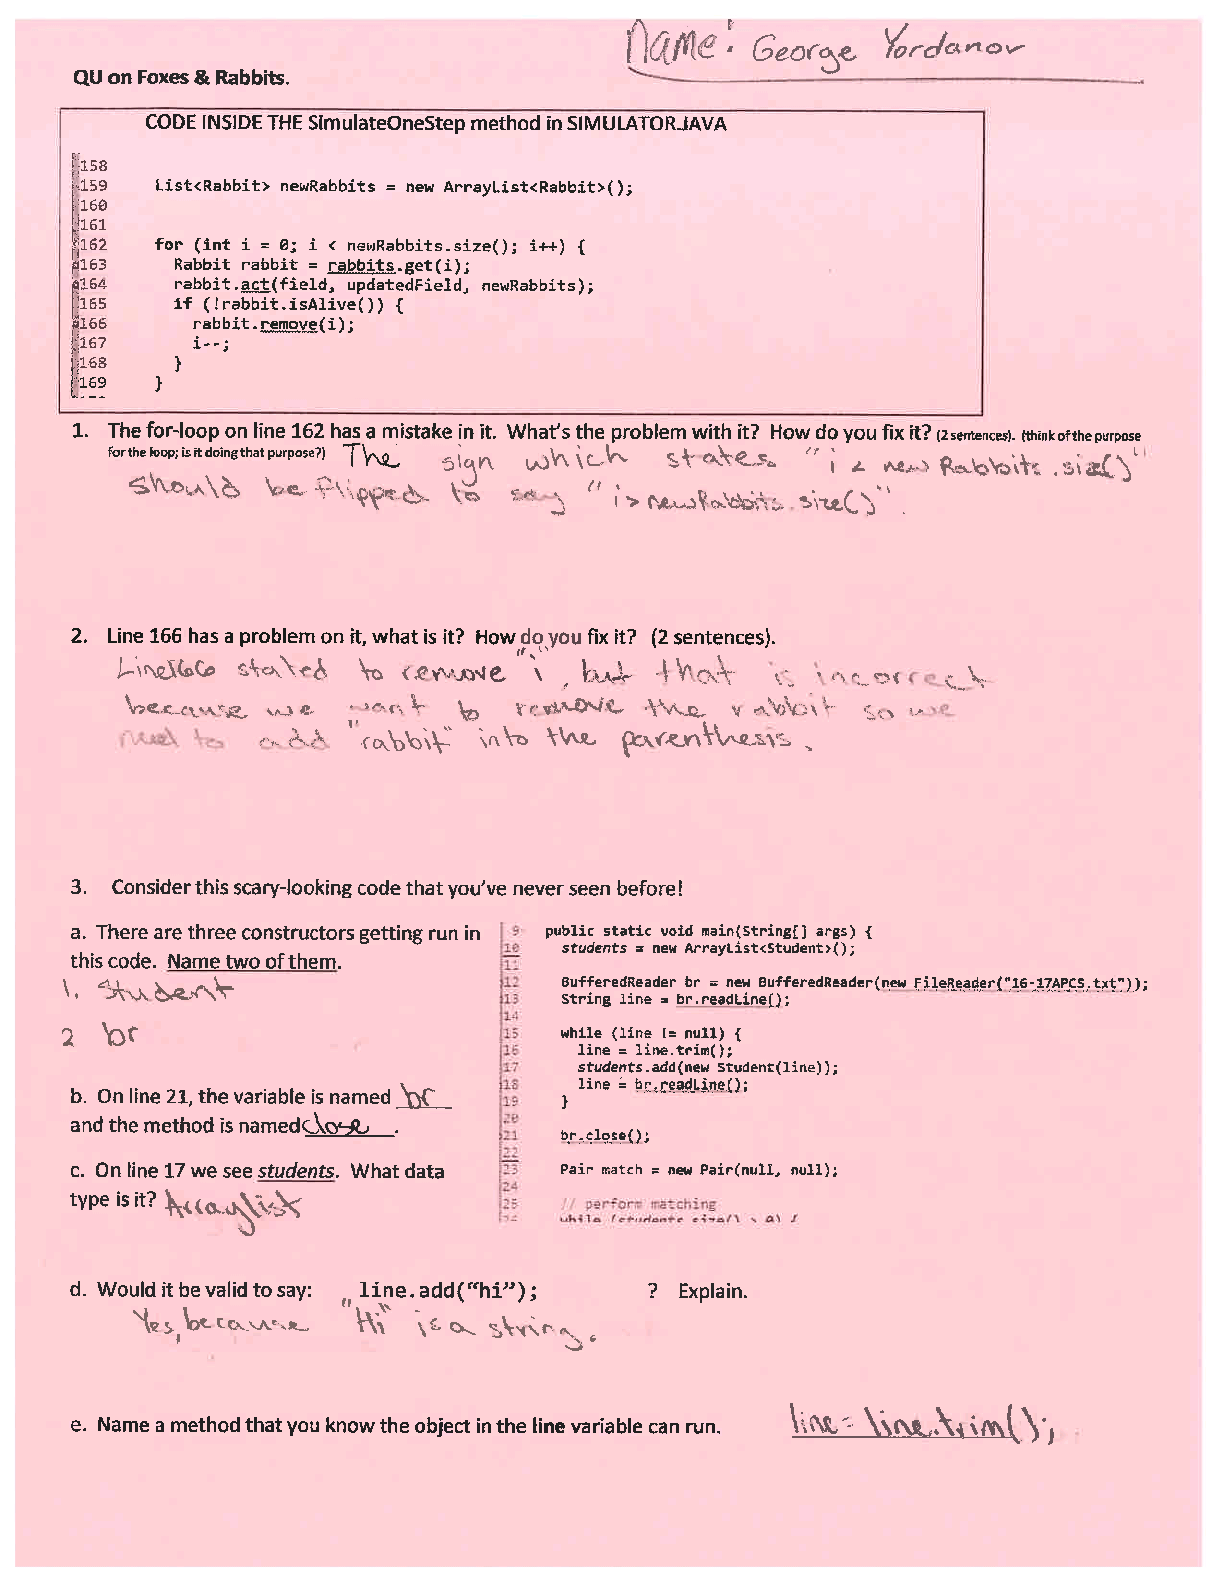 Name: George Yordanov
QU on Foxes & Rabbits.
CODE INSIDE THE SimulateOneStep method in SIMULATOR.JAVA
158
159 List<Rabbit> newRabbits = new ArrayList<Rabbit>();
160
161
162 for (int i = 0; i < newRabbits.size(); i++) {
163 Rabbit rabbit = rabbits.get(i);
164 rabbit.act(field, updatedField, newRabbits);
165 if (!rabbit.isAlive()) {
166 rabbit.remove(i);
167 i--;
168 }
169 }
1. The for-loop on line 162 has a mistake in it. What's the problem with it? How do you fix it? (2 sentences). (think of the purpose
for the loop; is it doing that purpose?) The sign which states "i < newRabbits.size()"
should be flipped to say "i > newRabbits.size()".
2. Line 166 has a problem on it, what is it? How do you fix it? (2 sentences).
Line166 stated to remove "i", but that is incorrect
because we want to remove the rabbit so we
need to add "rabbit" into the parenthesis.
3. Consider this scary-looking code that you've never seen before!
a. There are three constructors getting run in
this code. Name two of them.
1. Student
2 br
b. On line 21, the variable is named br
and the method is named close.
c. On line 17 we see students. What data
type is it? Arraylist
9 public static void main(String[] args) {
10 students = new ArrayList<Student>();
11
12 BufferedReader br = new BufferedReader(new FileReader("16-17APCS.txt"));
13 String line = br.readLine();
14
15 while (line != null) {
16 line = line.trim();
17 students.add(new Student(line));
18 line = br.readLine();
19 }
20
21 br.close();
22
23 Pair match = new Pair(null, null);
24
25 // perform matching
while (students.size() > 0) {
d. Would it be valid to say: line.add("hi"); ? Explain.
Yes, because "Hi" is a string.
e. Name a method that you know the object in the line variable can run. line = line.trim();